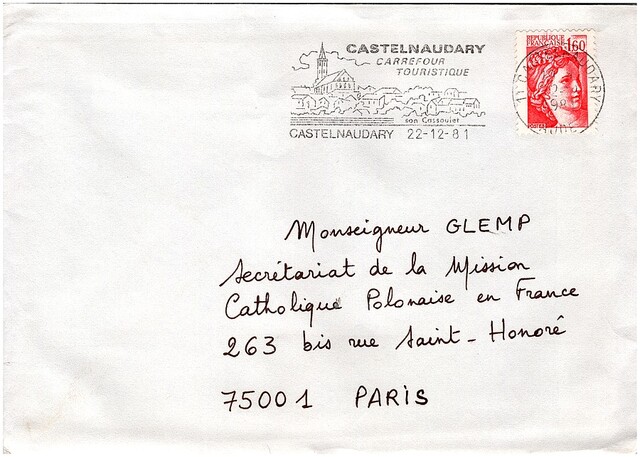 CASTELNAUDARY
CARREFOUR
TOURISTIQUE
son Cassoulet
CASTELNAUDARY 22-12-81
REPUBLIQUE
FRANÇAISE 1,60
POSTES
AUDE
Monseigneur GLEMP
Secrétariat de la Mission
Catholique Polonaise en France
263 bis rue Saint-Honoré
75001 PARIS